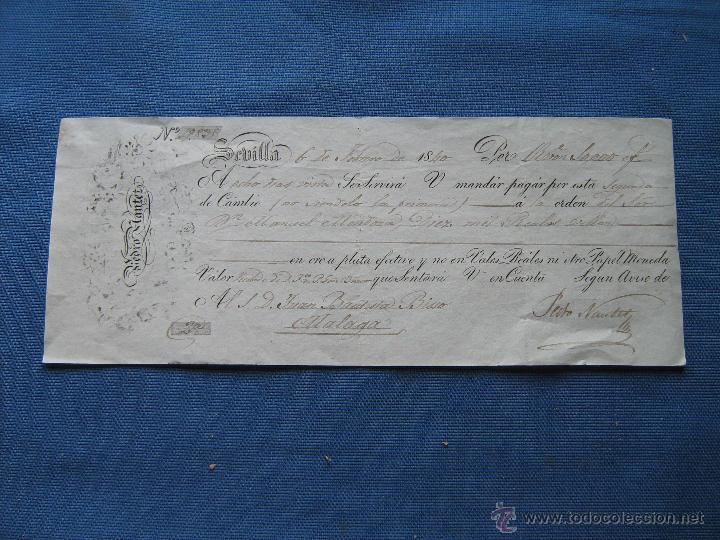 Nº
Sevilla 6 de Febrero de 1840 Por Rvon
A ocho dias vista Se Servirá V mandar pagar por esta Segunda
de Cambio (no siendolo la primera) á la orden del Sor
Dn Manuel Mendoza Diez mil Reales vellon
en oro o plata efectivo y no en Vales Reales ni otro Papel Moneda
Valor que Sentará V en Cuenta Segun Aviso de
Al S. D. Juan Bautista
Malaga
Pedro Nautet
Pedro Nautet
todocoleccion
www.todocoleccion.net